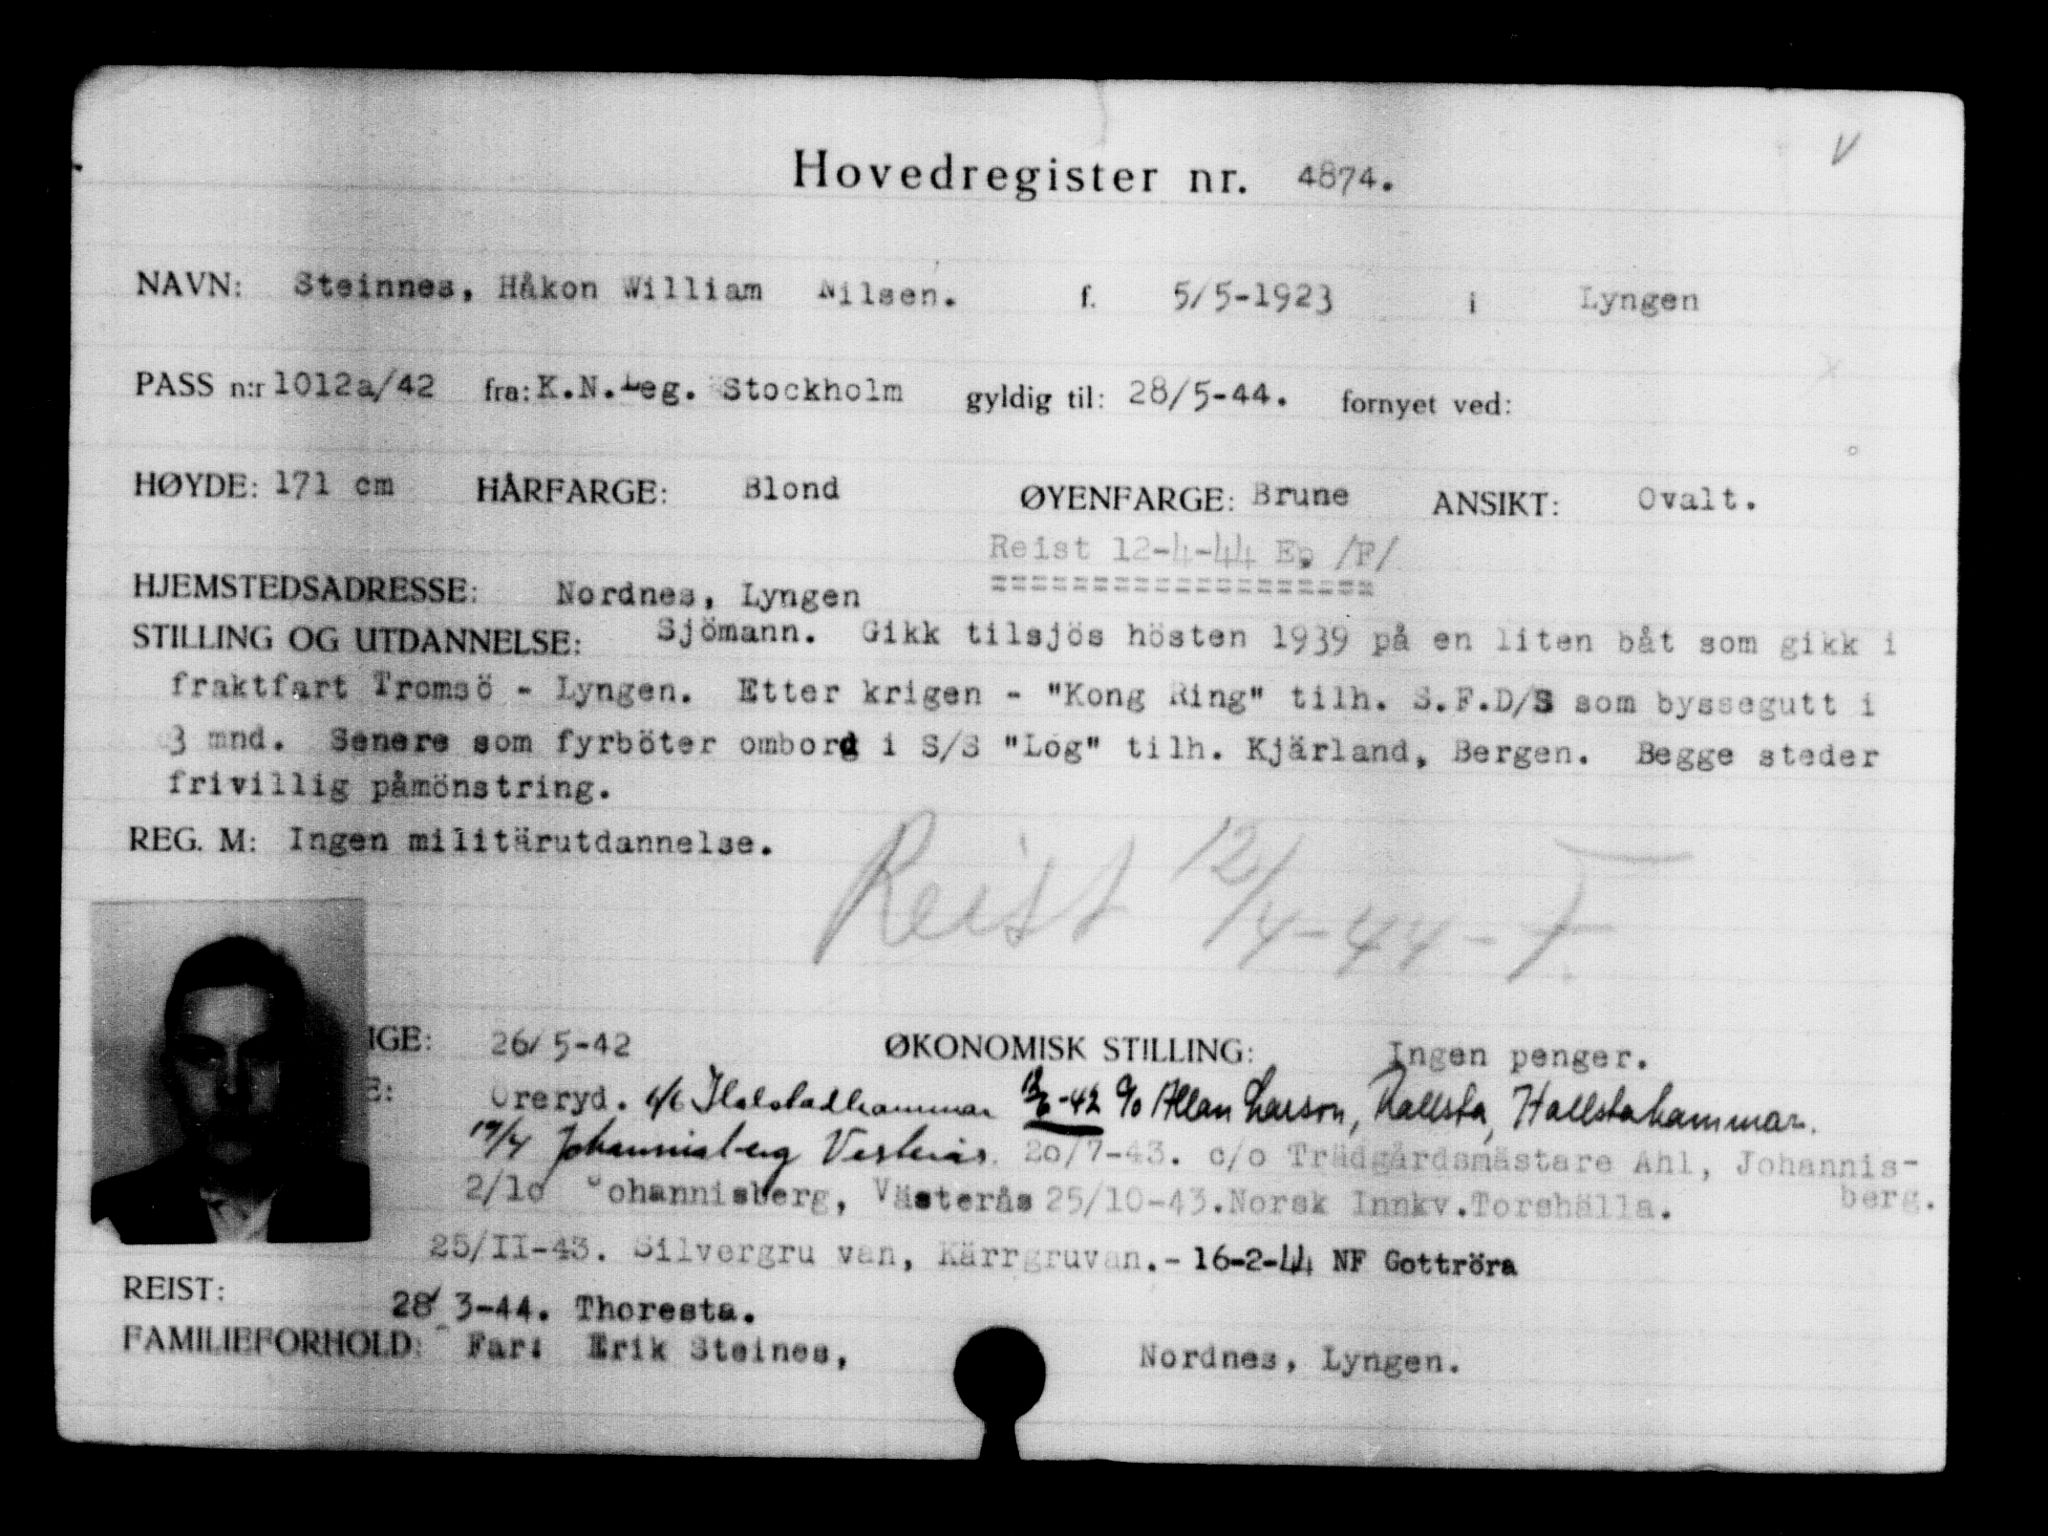 Hovedregister nr. 4874.
NAVN: Steinnes, Håkon William Nilsen. f. 5/5-1923 i Lyngen
PASS n:r 1012a/42 fra: K.N.Leg. Stockholm gyldig til: 28/5-44. fornyet ved:
HØYDE: 171 cm HÅRFARGE: Blond ØYENFARGE: Brune ANSIKT: Ovalt.
Reist 12-4-44 Ep /F/
===================
HJEMSTEDSADRESSE: Nordnes, Lyngen
STILLING OG UTDANNELSE: Sjömann. Gikk tilsjös hösten 1939 på en liten båt som gikk i
fraktfart Tromsö - Lyngen. Etter krigen - "Kong Ring" tilh. S.F.D/S som byssegutt i
3 mnd. Senere som fyrböter ombord i S/S "Log" tilh. Kjärland, Bergen. Begge steder
frivillig påmönstring.
REG. M: Ingen militärutdannelse.
Reist 12/4-44-F.
IGE: 26/5-42 ØKONOMISK STILLING: Ingen penger.
E: Öreryd. 6/6 Halstadhammar -42 c/o Allan Larson, Rallsta, Hallstahammar.
Johannisberg Vesterås. 20/7-43. c/o Trädgårdsmästare Ahl, Johannis-
berg.
2/10 Johannisberg, Västerås 25/10-43. Norsk Innkv. Torshälla.
25/II-43. Silvergru van, Kärrgruvan.- 16-2-44 NF Gottröra
REIST:
28/3-44. Thoresta.
FAMILIEFORHOLD: Far: Erik Steines, Nordnes, Lyngen.